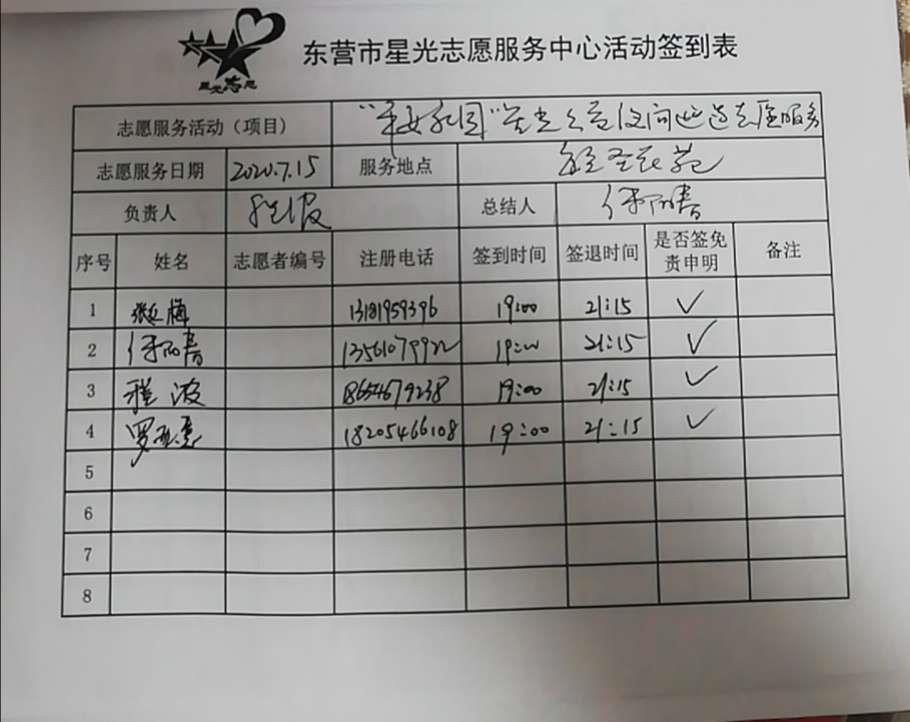 星光志愿
东营市星光志愿服务中心活动签到表
志愿服务活动（项目） "平安校园"星光公益夜间巡逻志愿服务
志愿服务日期 2020.7.15 服务地点
负责人 程波 总结人
序号 姓名 志愿者编号 注册电话 签到时间 签退时间 是否签免责申明 备注
1 张红梅 13181959396 19:00 21:15 ✓
2 1356107992 19:00 21:15 ✓
3 程波 18654679238 19:00 21:15 ✓
4 18205466108 19:00 21:15 ✓
5
6
7
8